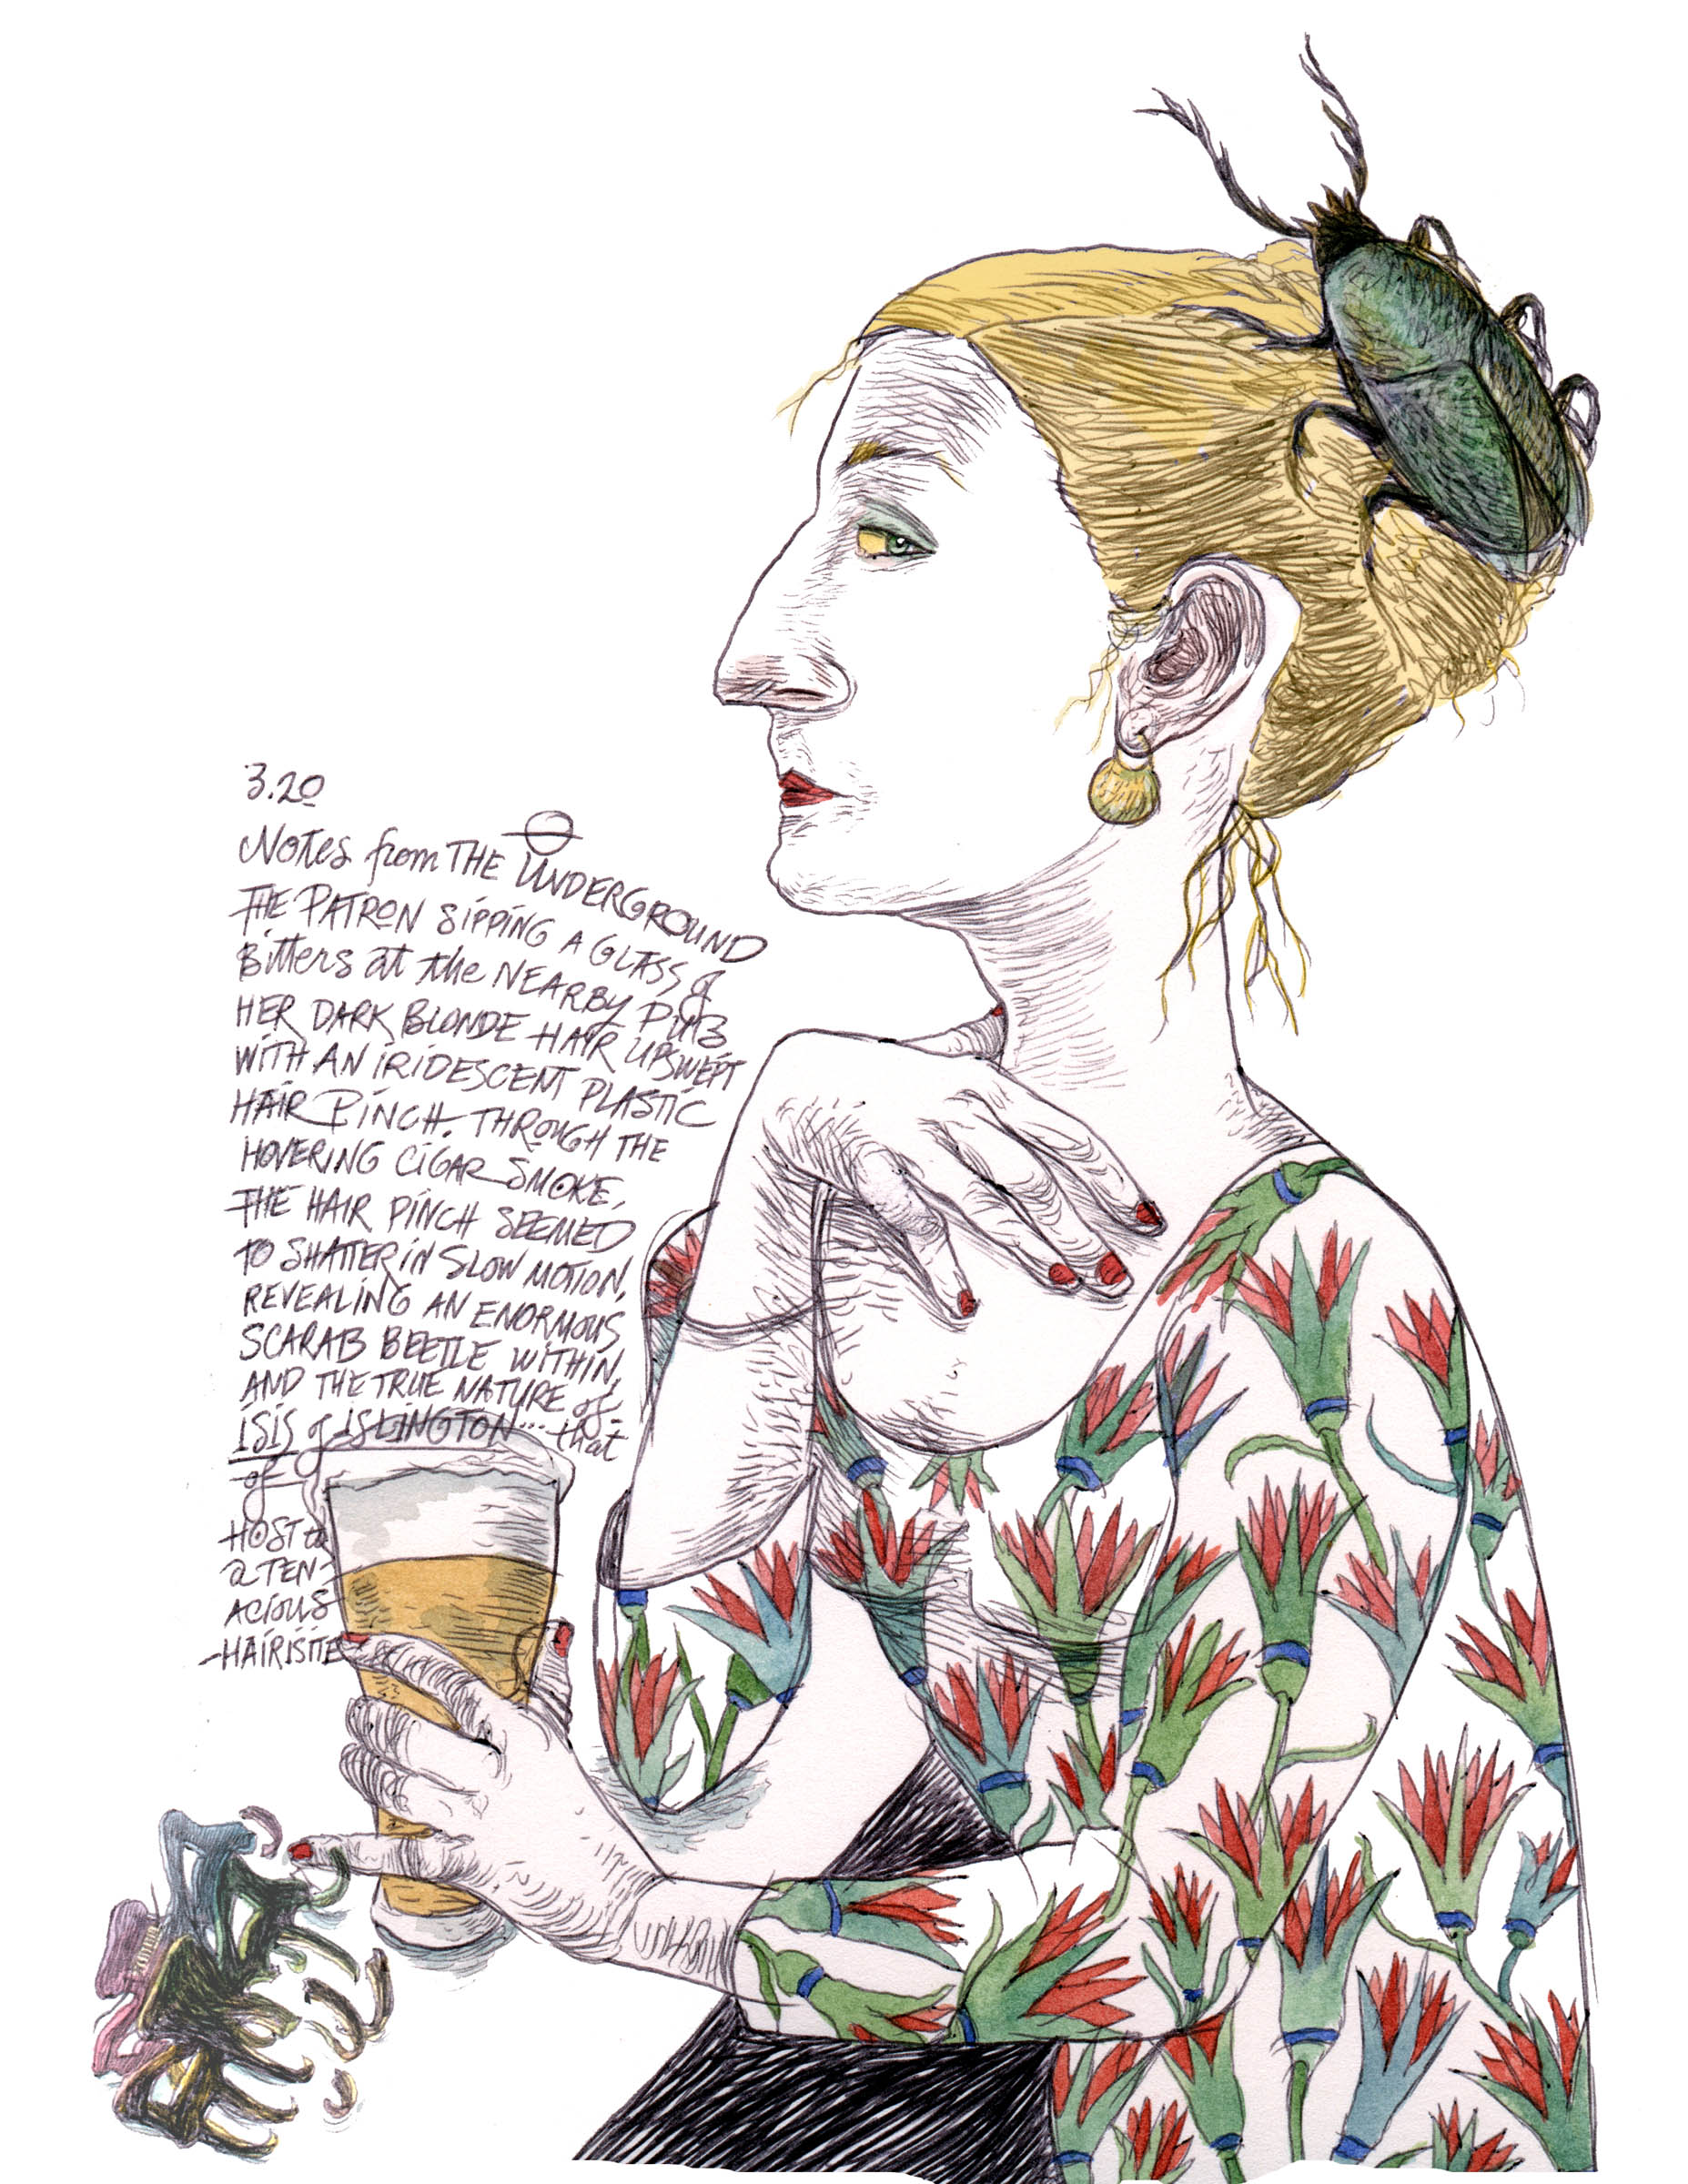 3.20
Notes from THE UNDERGROUND
THE PATRON SIPPING A GLASS of
Bitters at the NEARBY PUB
HER DARK BLONDE HAIR UPSWEPT
WITH AN IRIDESCENT PLASTIC
HAIR PINCH. THROUGH THE
HOVERING CIGAR SMOKE,
THE HAIR PINCH SEEMED
TO SHATTER iN SLOW MOTION,
REVEALING AN ENORMOUS
SCARAB BEETLE WITHIN,
AND THE TRUE NATURE of
ISIS of ISLINGTON... that
of
HOST to
a TEN-
ACIOUS
-HAIRISITE